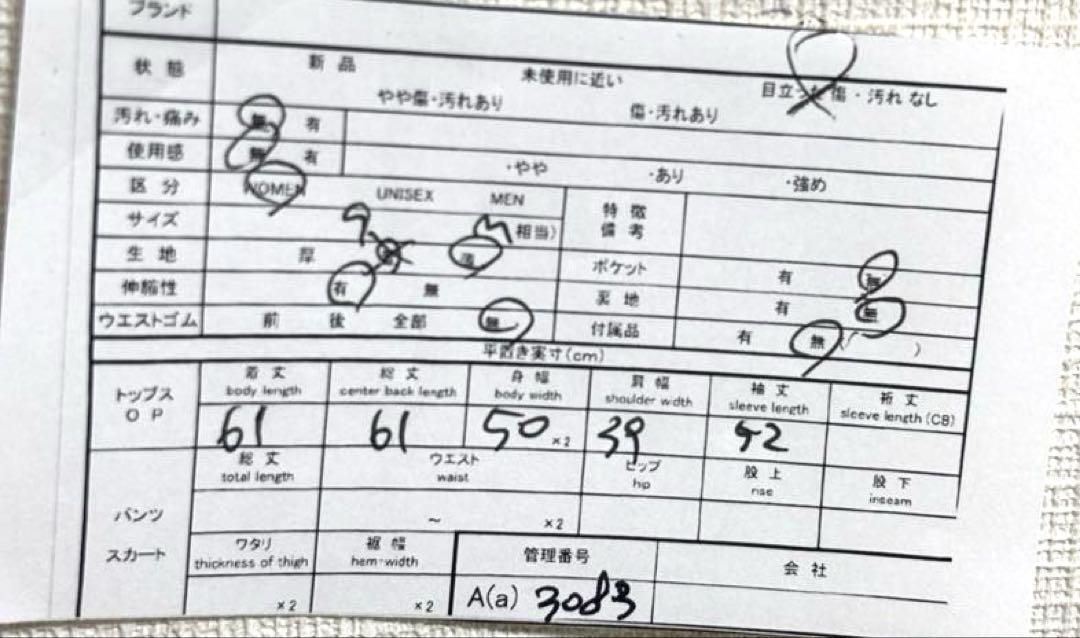 ブランド
状態 新品 未使用に近い 目立った傷・汚れなし
やや傷・汚れあり 傷・汚れあり
汚れ・痛み 無 有
使用感 無 有 ・やや ・あり ・強め
区分 WOMEN UNISEX MEN
サイズ 9 M 相当)
特徴
備考
生地 厚
ポケット 有 無
伸縮性 有 無
裏地 有 無
ウエストゴム 前 後 全部 無
付属品 有 無 ( )
平置き実寸(cm)
トップス
OP
着丈 総丈 身幅 肩幅 袖丈 裄丈
body length center back length body width shoulder width sleeve length sleeve length(CB)
61 61 50 ×2 39 42
パンツ
スカート
総丈 ウエスト ヒップ 股上 股下
total length waist hip rise inseam
~ ×2
ワタリ 裾幅 管理番号 会社
thickness of thigh hem-width
×2 ×2 A(a) 3083